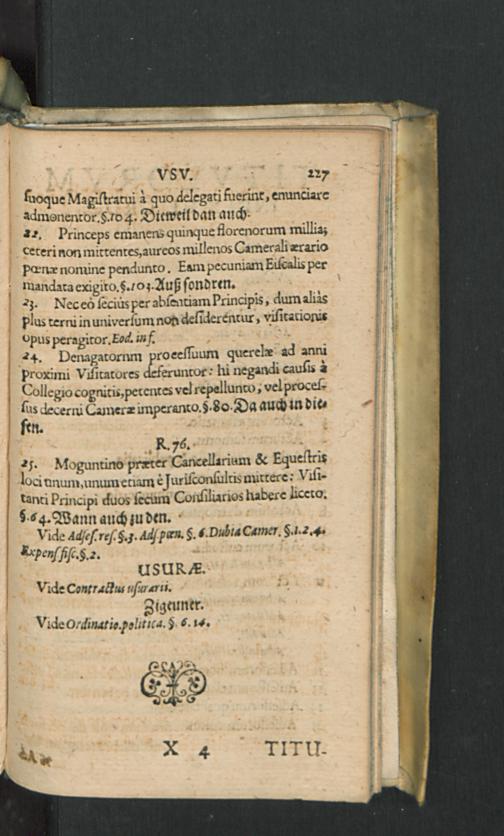 VSV. 227
ſuoque Magiſtratui à quo delegati fuerint, enunciare
admonentor. §. 104. Dieweil dan auch.
22. Princeps emanens quinque florenorum millia;
ceteri non mittentes, aureos millenos Camerali ærario
pœnæ nomine pendunto. Eam pecuniam Fiſcalis per
mandata exigito. §. 103. Auß ſondren.
23. Nec eò ſeciùs per abſentiam Principis, dum aliàs
plus terni in univerſum non deſiderentur, viſitationis
opus peragitor. Eod. in f.
24. Denagatorum proeeſſuum querelæ ad anni
proximi Viſitatores deferuntor: hi negandi cauſis à
Collegio cognitis, petentes vel repellunto, vel proceſ-
ſus decerni Cameræ imperanto. §. 80. Da auch in die-
ſen.
R. 76.
25. Moguntino præter Cancellarium & Equeſtris
loci unum, unum etiam è Juriſconſultis mittere: Viſi-
tanti Principi duos ſecum Conſiliarios habere liceto.
§. 64. Wann auch zu den.
Vide Adſeſ. reſ. §. 3. Adſ. pœn. §. 6. Dubia Camer. §. 1. 2. 4.
Expenſ. fiſc. §. 2.
USURÆ.
Vide Contractus uſurarii.
Zigeuner.
Vide Ordinatio. politica. §. 6. 14.
X 4 TITU-